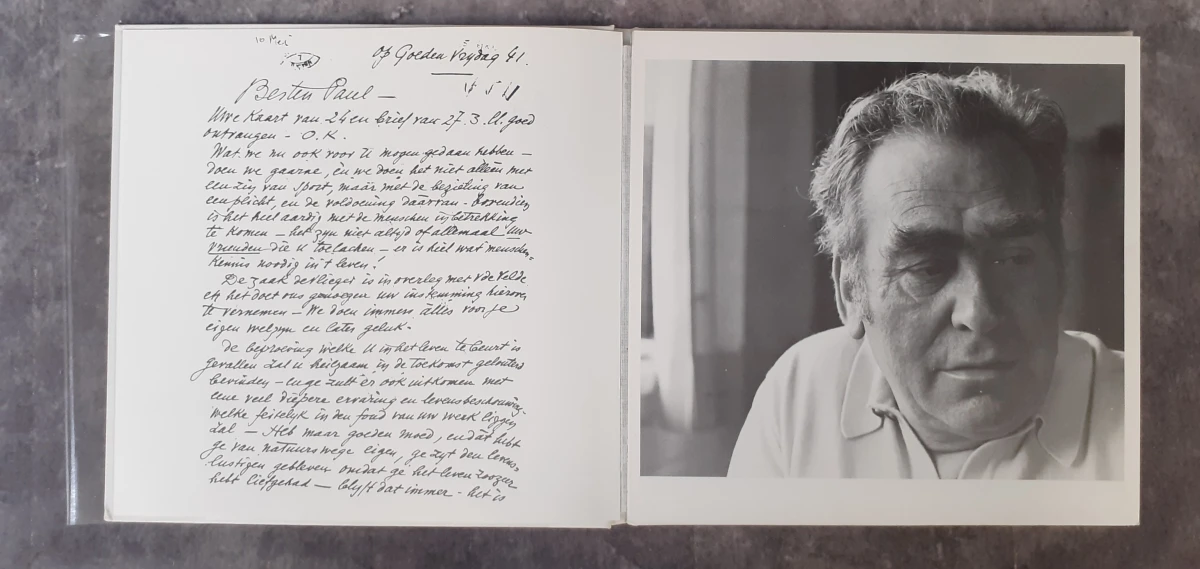 10 Mei
op Goeden Vrydag 41.
Besten Paul —
Uwe Kaart van 24 en brief van 27.3.ll. goed
ontvangen – O.K.
Wat we nu ook voor U mogen gedaan hebben –
doen we gaarne, èn we doen het niet alleen met
een zin van sport, maar met de bezieling van
een plicht, en de voldoening daarvan – bovendien
is het heel aardig met de menschen in betrekking
te komen – het zyn niet altyd of allemaal uw
vrienden die U toelachen – er is heel wat menschen=
kennis noodig in 't leven!
De zaak devlieger is in overleg met vde Velde
en het doet ons genoegen uw instemming hierover
te vernemen – We doen immers alles voor je
eigen welzyn en later geluk.
de beproeving welke U in het leven te beurt is
gevallen zal u heilzaam in de toekomst gelouterd
bevinden – en ge zult er ook uitkomen met
eene veel diepere ervaring en levensbeschouwing
welke feitelyk in den fond van uw werk liggen
zal – Heb maar goeden moed, en dàt hebt
ge van natuurswege eigen, ge zyt den levens=
lustigen gebleven omdat ge het leven zoozeer
hebt liefgehad – blyft dat immer – het is